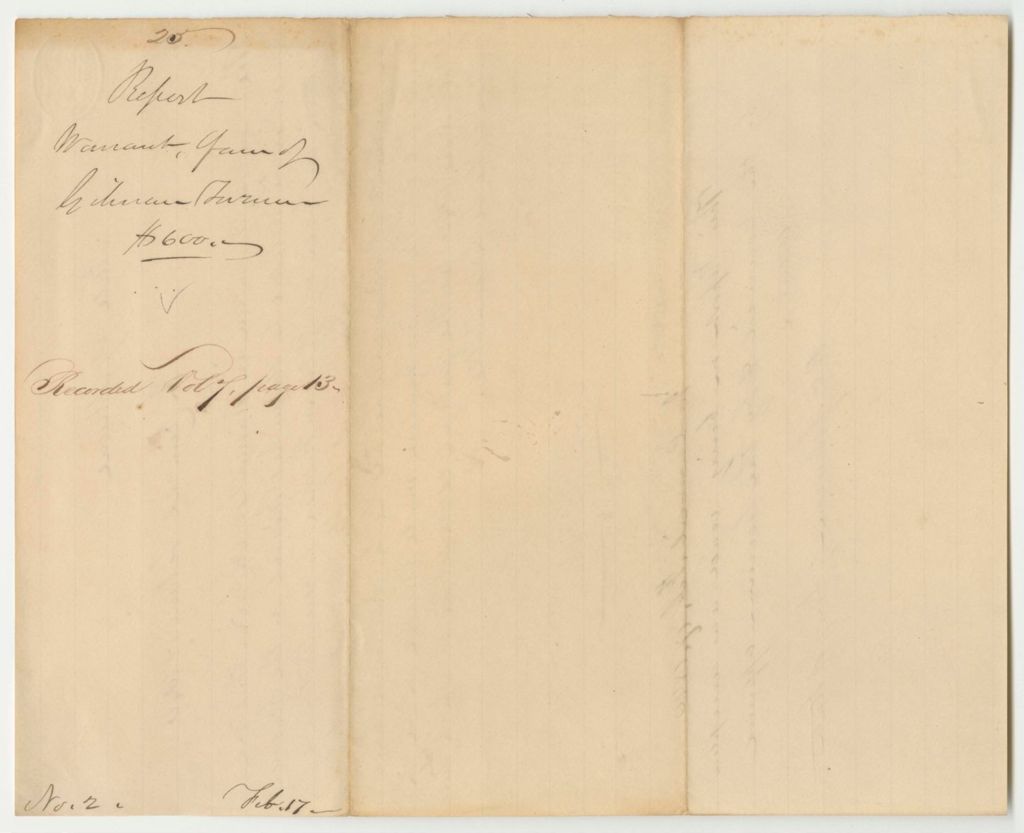 25.
Report
Warrant, favr of
Gilman Turner
$600.
Recorded Vol 7, page 13
No. 2.
Feb. 17